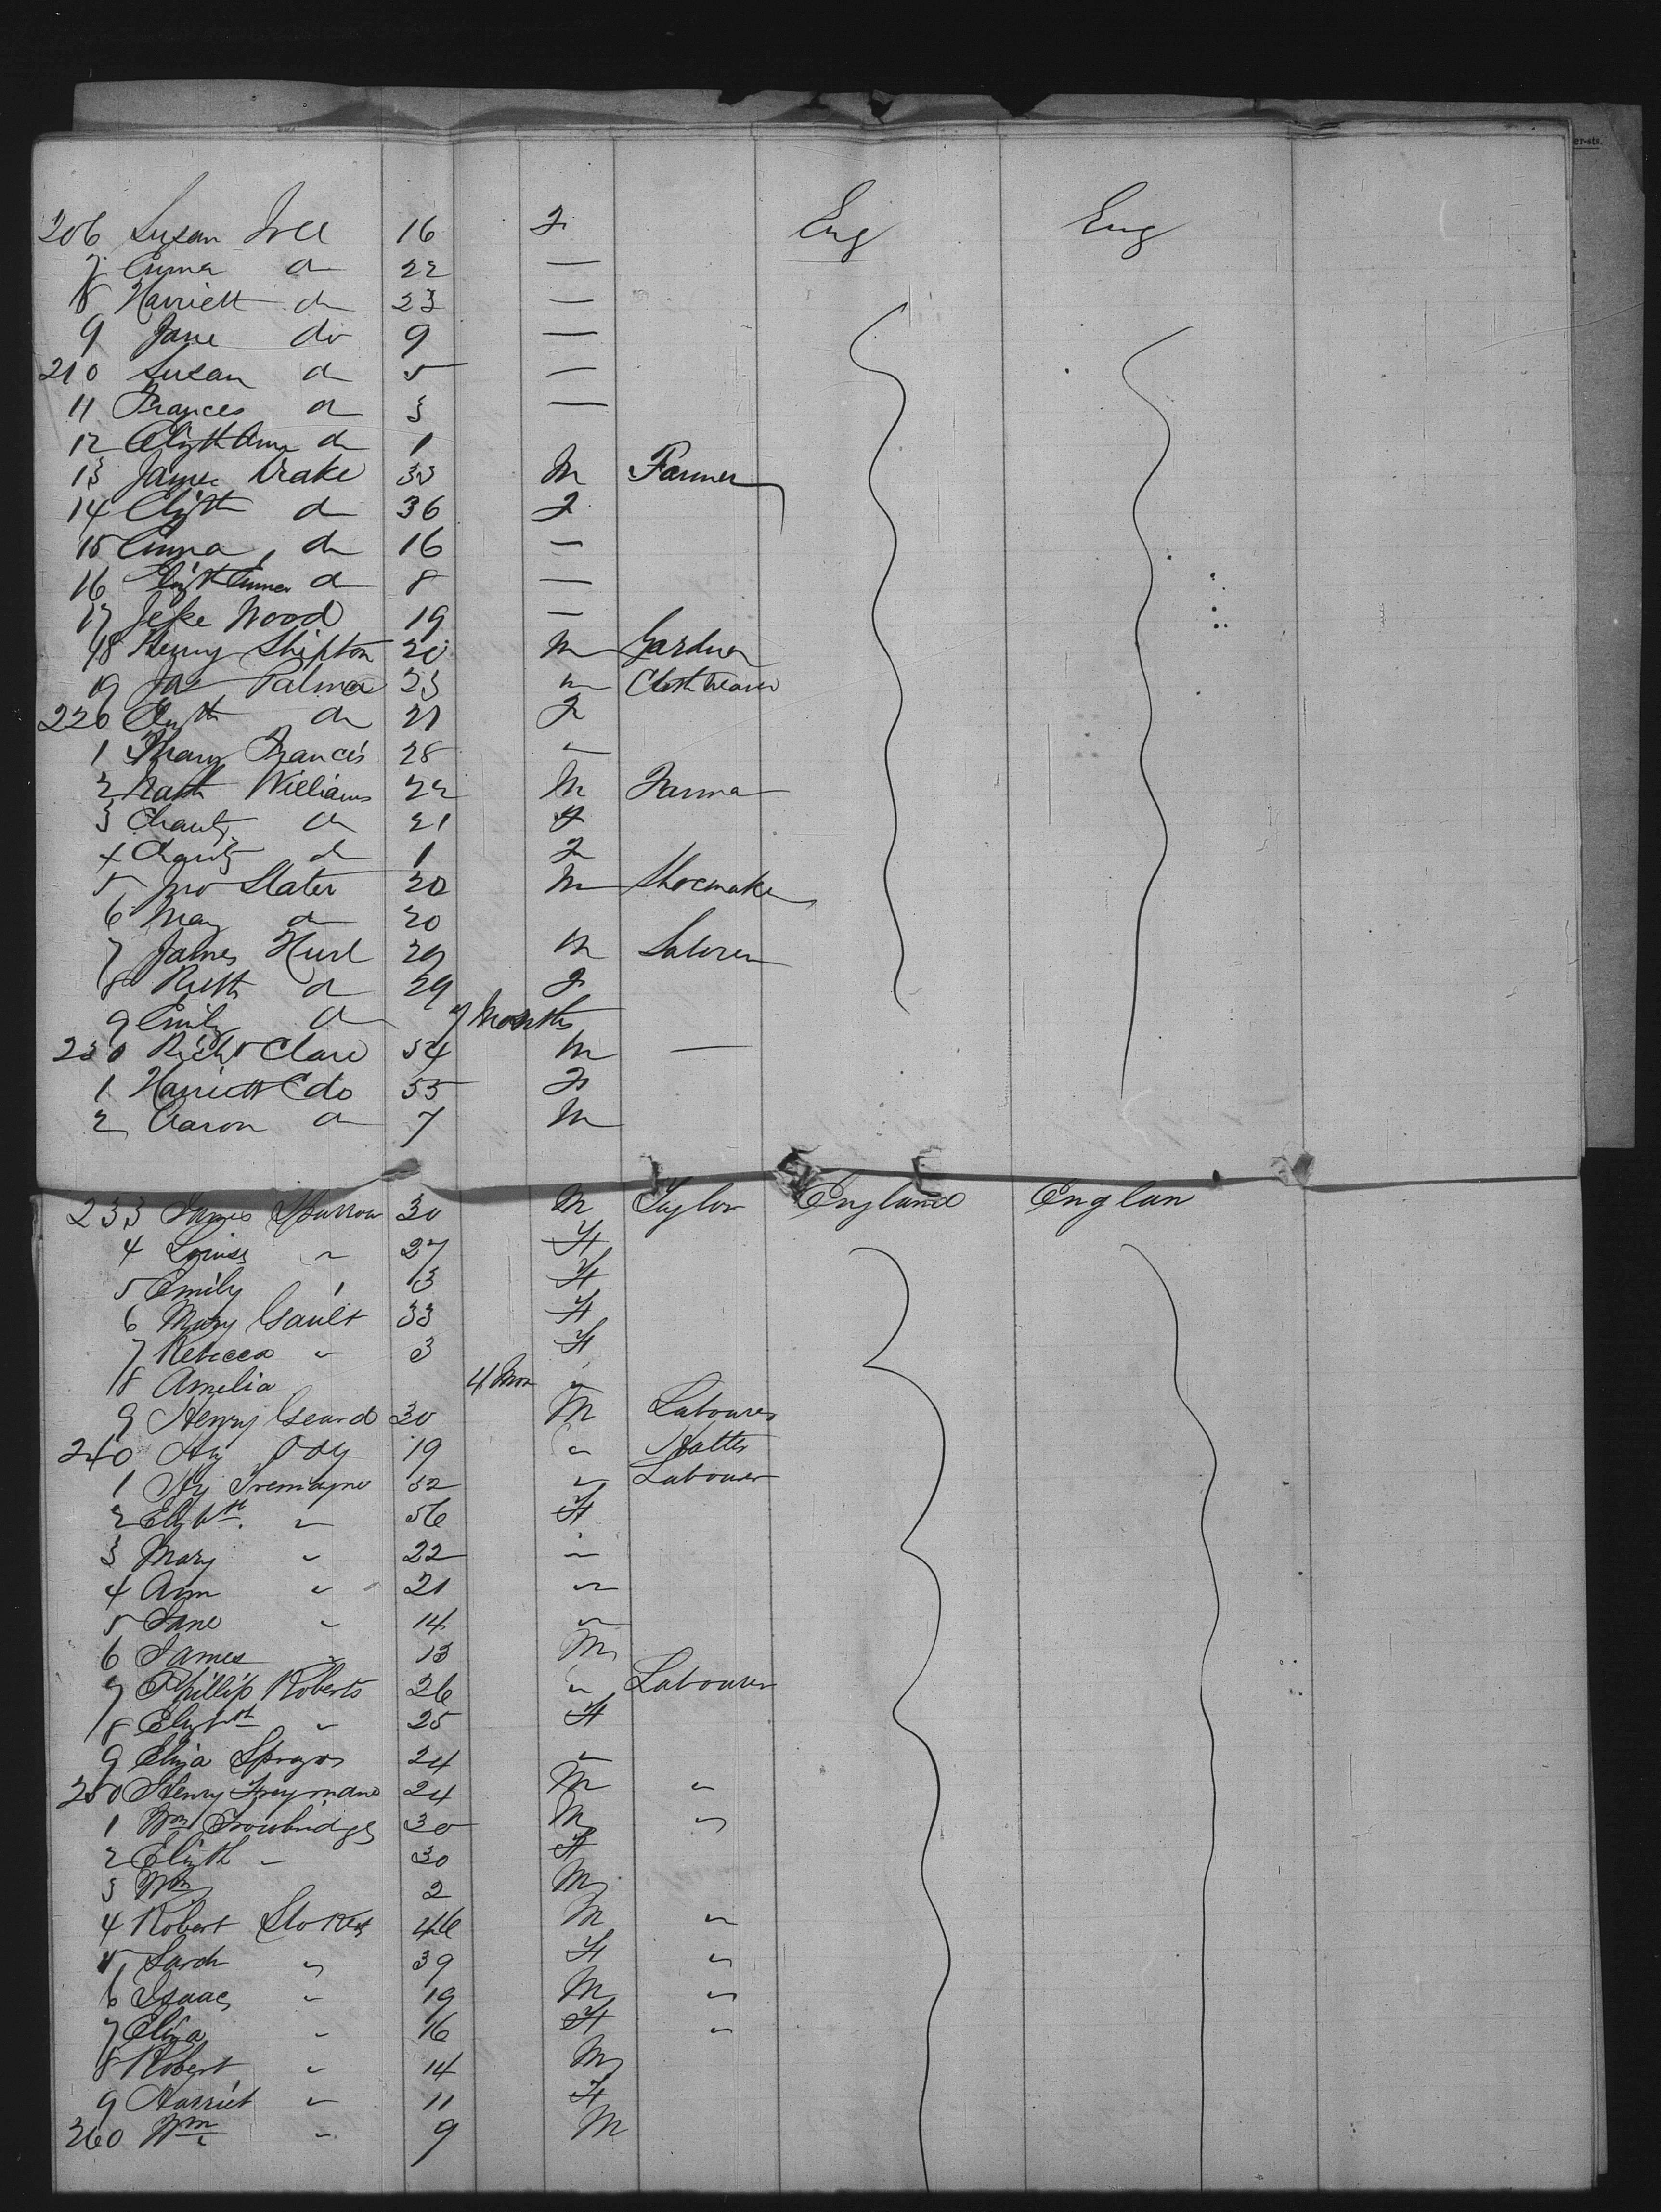 er-sts.
206 Susan 16 F Eng Eng
7 Emma do 22 —
8 Harriett do 23 —
9 Jane do 9 —
210 Susan do 5 —
11 Frances do 3 —
12 do 1
13 James Drake 33 M Farmer
14 Elizth do 36 F
15 Emma do 16 —
16 do 8 —
17 Jesse Wood 19 —
18 Henry Shipton 20 M Gardner
19 Jas Palmer 23 " Cloth Weaver
220 Elizth do 21 F
1 Mary Francis 28 "
2 Nath Williams 22 M Farmer
3 Charity do 21 F
4 Charity do 1 F
5 Jno Slater 20 M Shoemaker
6 Mary do 20
7 James Hurl 29 M Laborer
8 Ruth do 29 F
9 Emily do 7 Months
230 Richd Clare 54 M —
1 Harriett C do 55 F
2 Aaron do 7 M
233 James Sparrow 30 M Taylor England Englan
4 Louisa " 27 F
5 Emily " 13 F
6 Mary Gault 33 F
7 Rebecca " 3 F
8 Amelia 4 Mon "
9 Henry Geard 30 M Labourer
240 Hy Ody 19 " Hatter
1 Hy Tremayne 52 " Labourer
2 Elizbth. " 56 F
3 Mary " 22 "
4 Ann " 21 "
5 Jane " 14 "
6 James " 13 M
7 Phillip Roberts 26 " Labourer
8 Elizbth " 25 F
9 Eliza 24 "
250 Henry 24 M "
1 Wm Trowbridge 30 M "
2 Elizth " 30 F
3 Wm 2 M
4 Robert Stokes 46 M "
5 Sarah " 39 F "
6 Isaac " 19 M "
7 Eliza " 16 F "
8 Robert " 14 M
9 Harriet " 11 F
260 Wm " 9 M